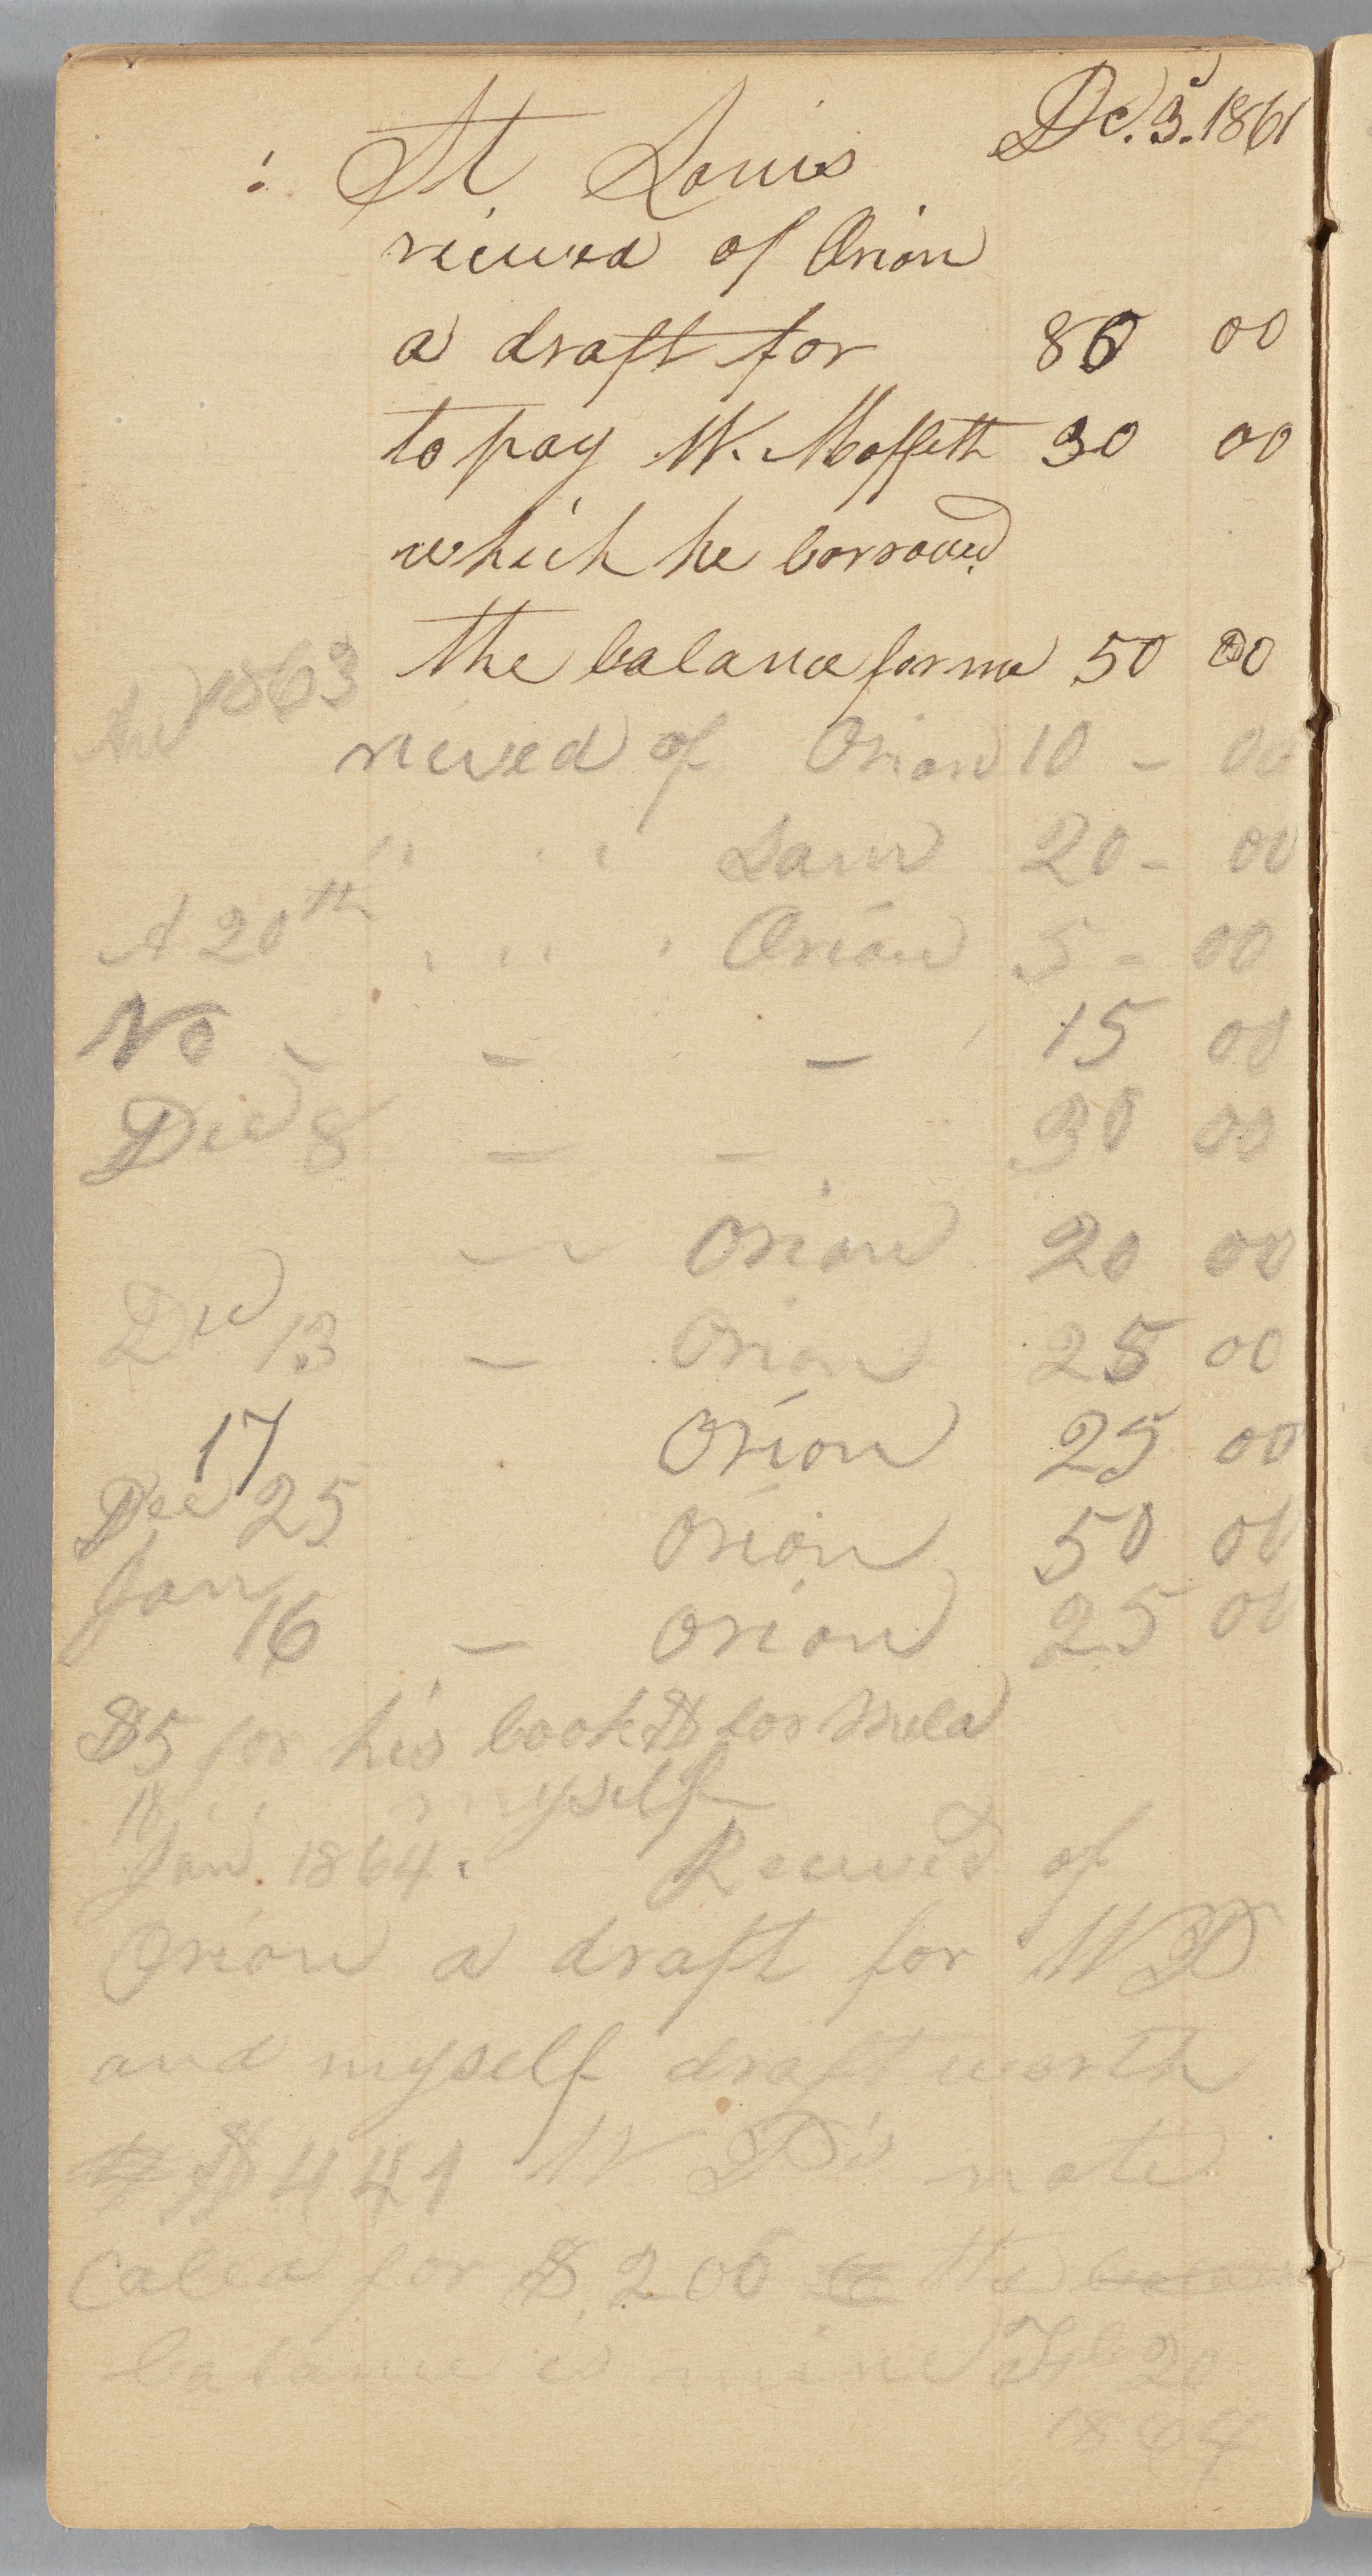 Dc. 3. 1861
: St Louis
reieved of Orion
a draft for 80 00
to pay W. Moffett 30 00
which he borrowed
the balance for me 50 00
1863
reieved of Orion 10 - 00
" " Sam 20 - 00
A 20th " " Orion 5 - 00
No - - - 15 00
Dec 8 - - 30 00
Orion 20 00
Dec 13 - Orion 25 00
17 Orion 25 00
Dec 25 Orion 50 00
Jan 16 - Orion 25 00
$5 for his book $ for
myself
18
Jan. 1864. Recieved of
Orion a draft for W D
and myself draft worth
$ 441 W D's note
called for $ 206 the
balance is mine Feb 20
1864